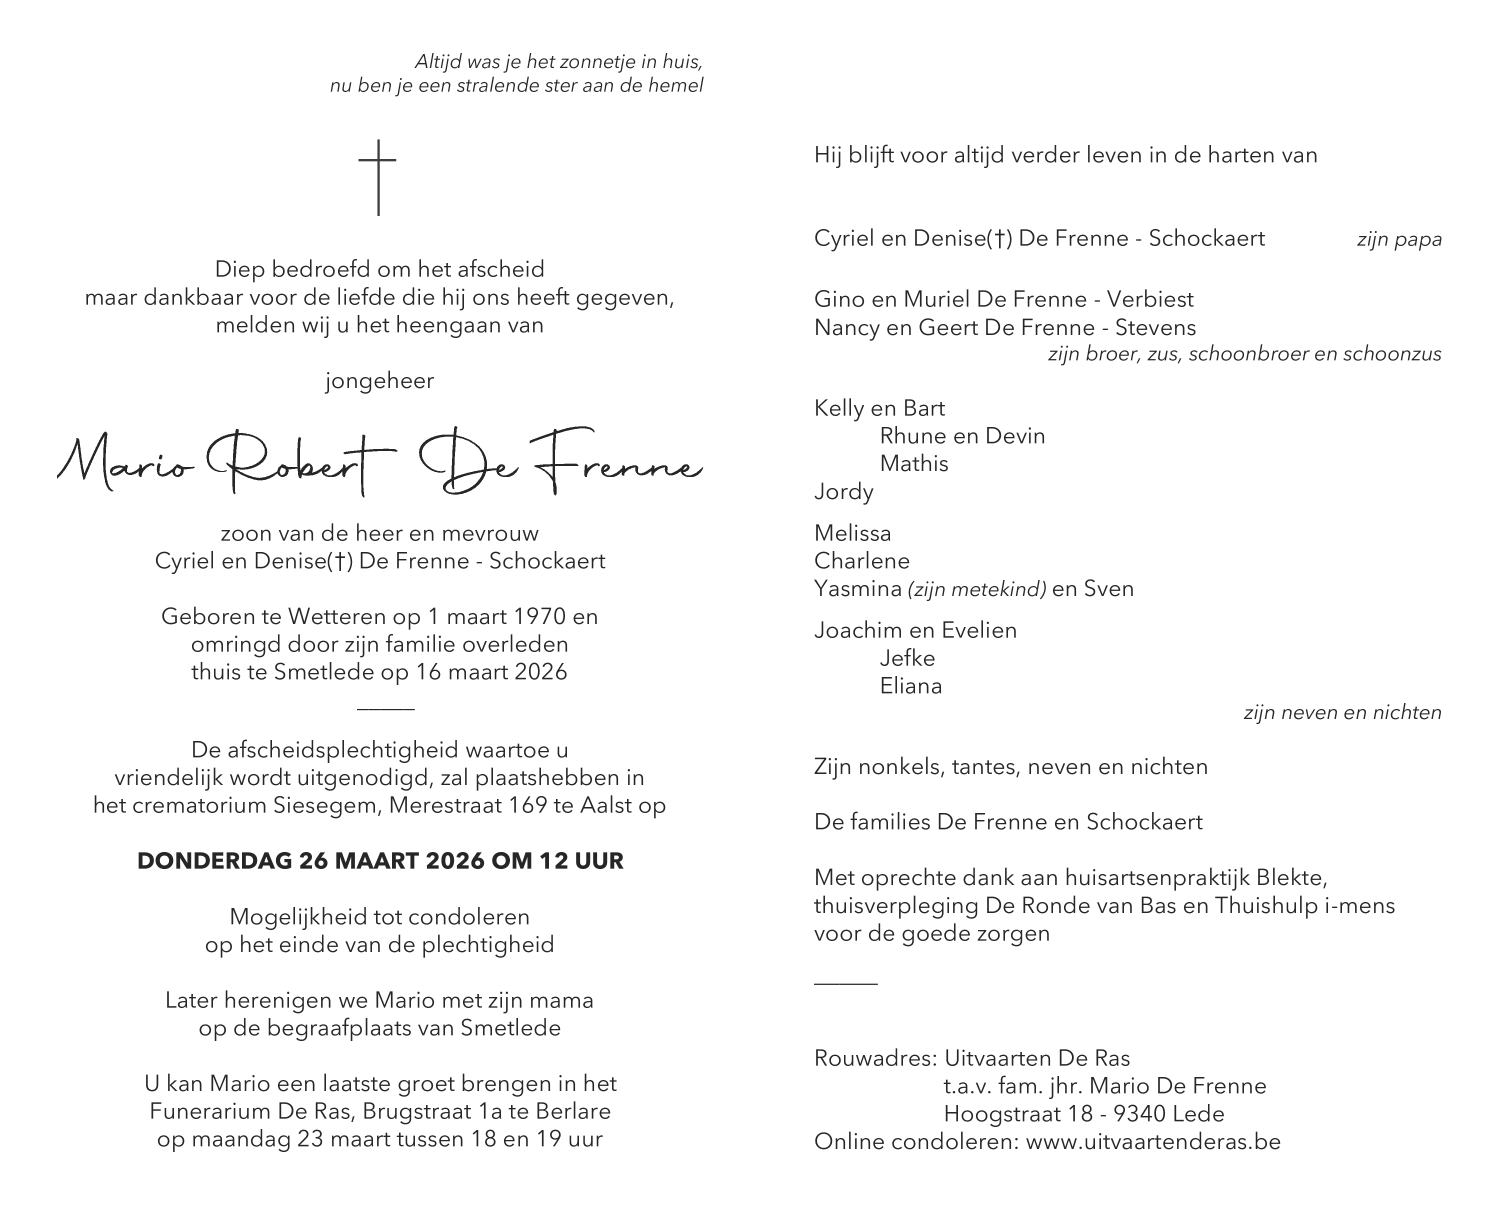 Altijd was je het zonnetje in huis,
nu ben je een stralende ster aan de hemel
Diep bedroefd om het afscheid
maar dankbaar voor de liefde die hij ons heeft gegeven,
melden wij u het heengaan van
jongeheer
Mario Robert De Frenne
zoon van de heer en mevrouw
Cyriel en Denise(†) De Frenne - Schockaert
Geboren te Wetteren op 1 maart 1970 en
omringd door zijn familie overleden
thuis te Smetlede op 16 maart 2026
De afscheidsplechtigheid waartoe u
vriendelijk wordt uitgenodigd, zal plaatshebben in
het crematorium Siesegem, Merestraat 169 te Aalst op
DONDERDAG 26 MAART 2026 OM 12 UUR
Mogelijkheid tot condoleren
op het einde van de plechtigheid
Later herenigen we Mario met zijn mama
op de begraafplaats van Smetlede
U kan Mario een laatste groet brengen in het
Funerarium De Ras, Brugstraat 1a te Berlare
op maandag 23 maart tussen 18 en 19 uur
Hij blijft voor altijd verder leven in de harten van
Cyriel en Denise(†) De Frenne - Schockaert zijn papa
Gino en Muriel De Frenne - Verbiest
Nancy en Geert De Frenne - Stevens
zijn broer, zus, schoonbroer en schoonzus
Kelly en Bart
Rhune en Devin
Mathis
Jordy
Melissa
Charlene
Yasmina (zijn metekind) en Sven
Joachim en Evelien
Jefke
Eliana
zijn neven en nichten
Zijn nonkels, tantes, neven en nichten
De families De Frenne en Schockaert
Met oprechte dank aan huisartsenpraktijk Blekte,
thuisverpleging De Ronde van Bas en Thuishulp i-mens
voor de goede zorgen
Rouwadres: Uitvaarten De Ras
t.a.v. fam. jhr. Mario De Frenne
Hoogstraat 18 - 9340 Lede
Online condoleren: www.uitvaartenderas.be